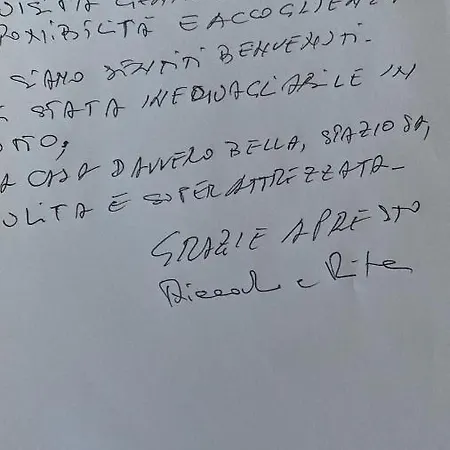 E ACCOGLIENZ
SIAMO SENTITI BENVENUTI.
STATA INEGUAGLIABILE IN
A CASA DAVVERO BELLA, SPAZIOSA,
ULITA E SUPER ATTREZZATA.
GRAZIE A PRESTO
Riccardo e Rita